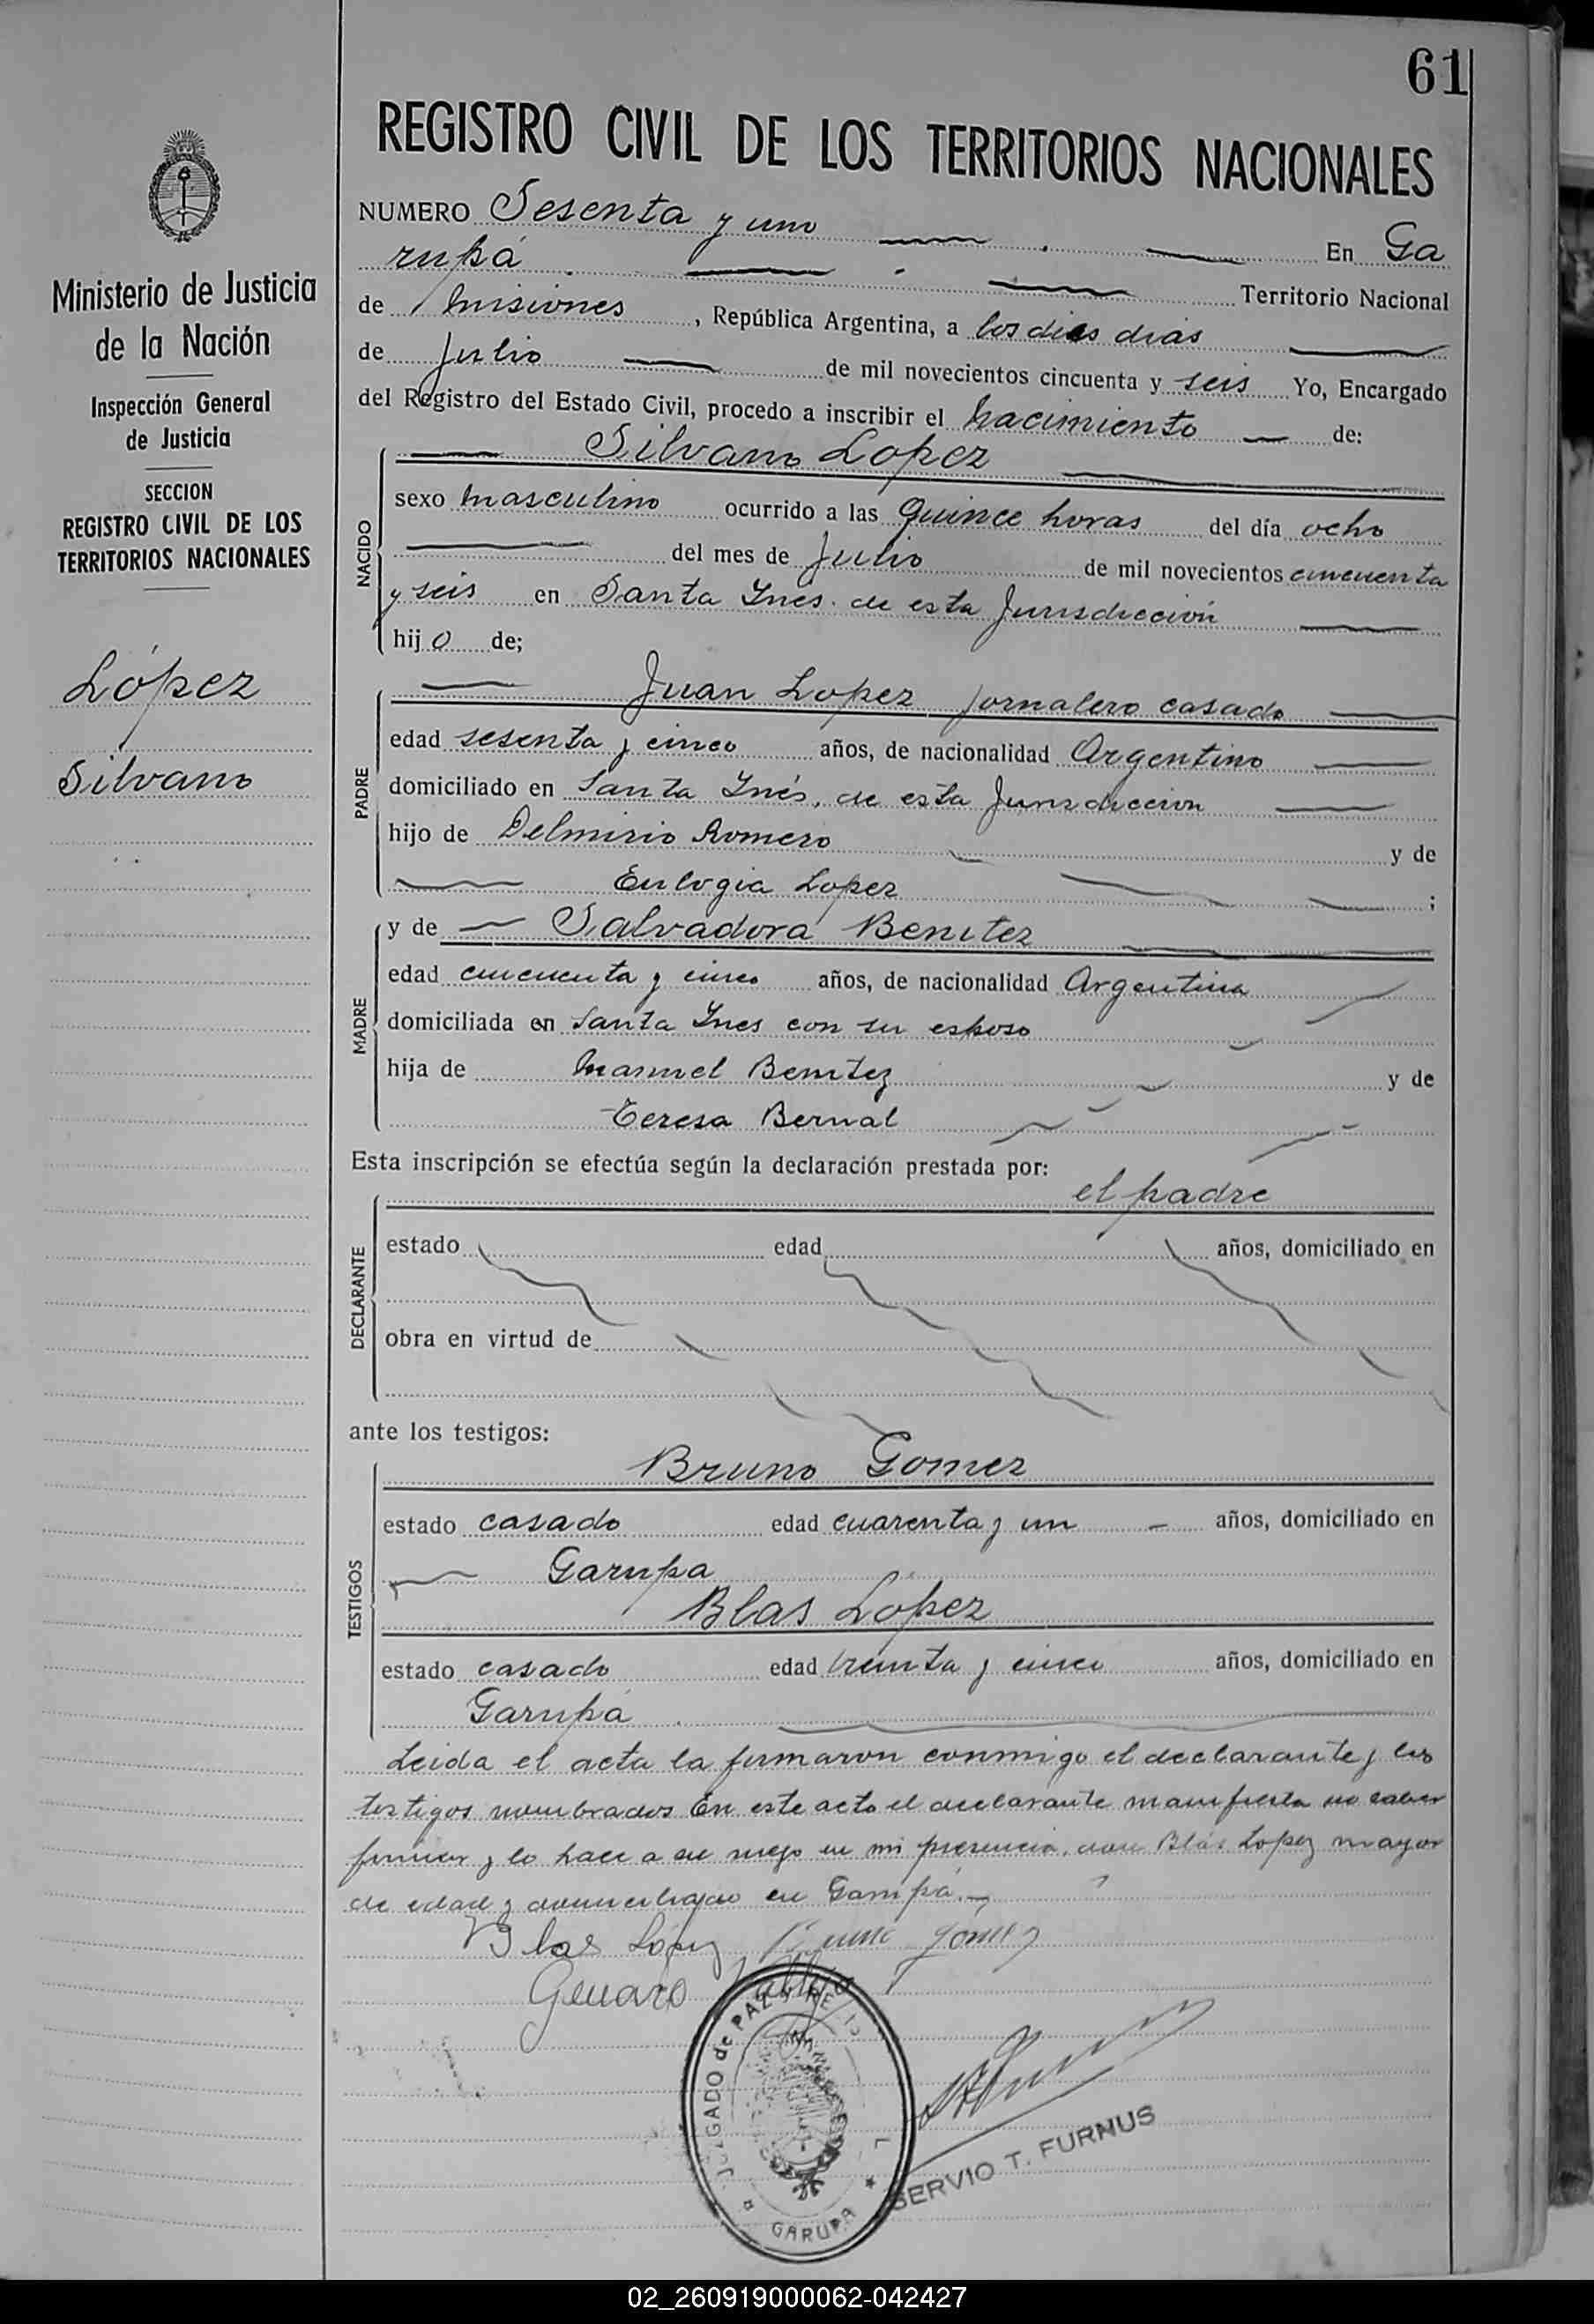 61
REGISTRO CIVIL DE LOS TERRITORIOS NACIONALES
Ministerio de Justicia
de la Nación
Inspección General
de Justicia
SECCION
REGISTRO CIVIL DE LOS
TERRITORIOS NACIONALES
López
Silvano
NUMERO Sesenta y uno En Ga
rupá Territorio Nacional
de Misiones, República Argentina, a los dies dias
de Julio de mil novecientos cincuenta y seis Yo, Encargado
del Registro del Estado Civil, procedo a inscribir el nacimiento de:
NACIDO
Silvano Lopez
sexo masculino ocurrido a las quince horas del día ocho
del mes de Julio de mil novecientos cincuenta
y seis en Santa Ynes. de esta Jurisdiccion
hijo de;
PADRE
Juan Lopez jornalero casado
edad sesenta y cinco años, de nacionalidad Argentino
domiciliado en Santa Ynés, de esta Jurisdiccion
hijo de Delmirio Romero y de
Eulogia Lopez ;
MADRE
y de Salvadora Benitez
edad cincuenta y cinco años, de nacionalidad Argentina
domiciliada en Santa Ynes con su esposo
hija de Manuel Benitez y de
Teresa Bernal
Esta inscripción se efectúa según la declaración prestada por:
el padre
DECLARANTE
estado edad años, domiciliado en
obra en virtud de
ante los testigos:
TESTIGOS
Bruno Gomez
estado casado edad cuarenta y un años, domiciliado en
Garupa
Blas López
estado casado edad treinta y cinco años, domiciliado en
Garupá
Leida el acta la firmaron conmigo el declarante y los
testigos nombrados En este acto el declarante manifiesta no saber
firmar y lo hace a su ruego en mi presencia, don Blás Lopez mayor
de edad y domiciliado en Garupá.
Blas López Bruno Gómez
Genaro
JUZGADO de PAZ
GARUPA
SERVIO T. FURNUS
02_260919000062-042427